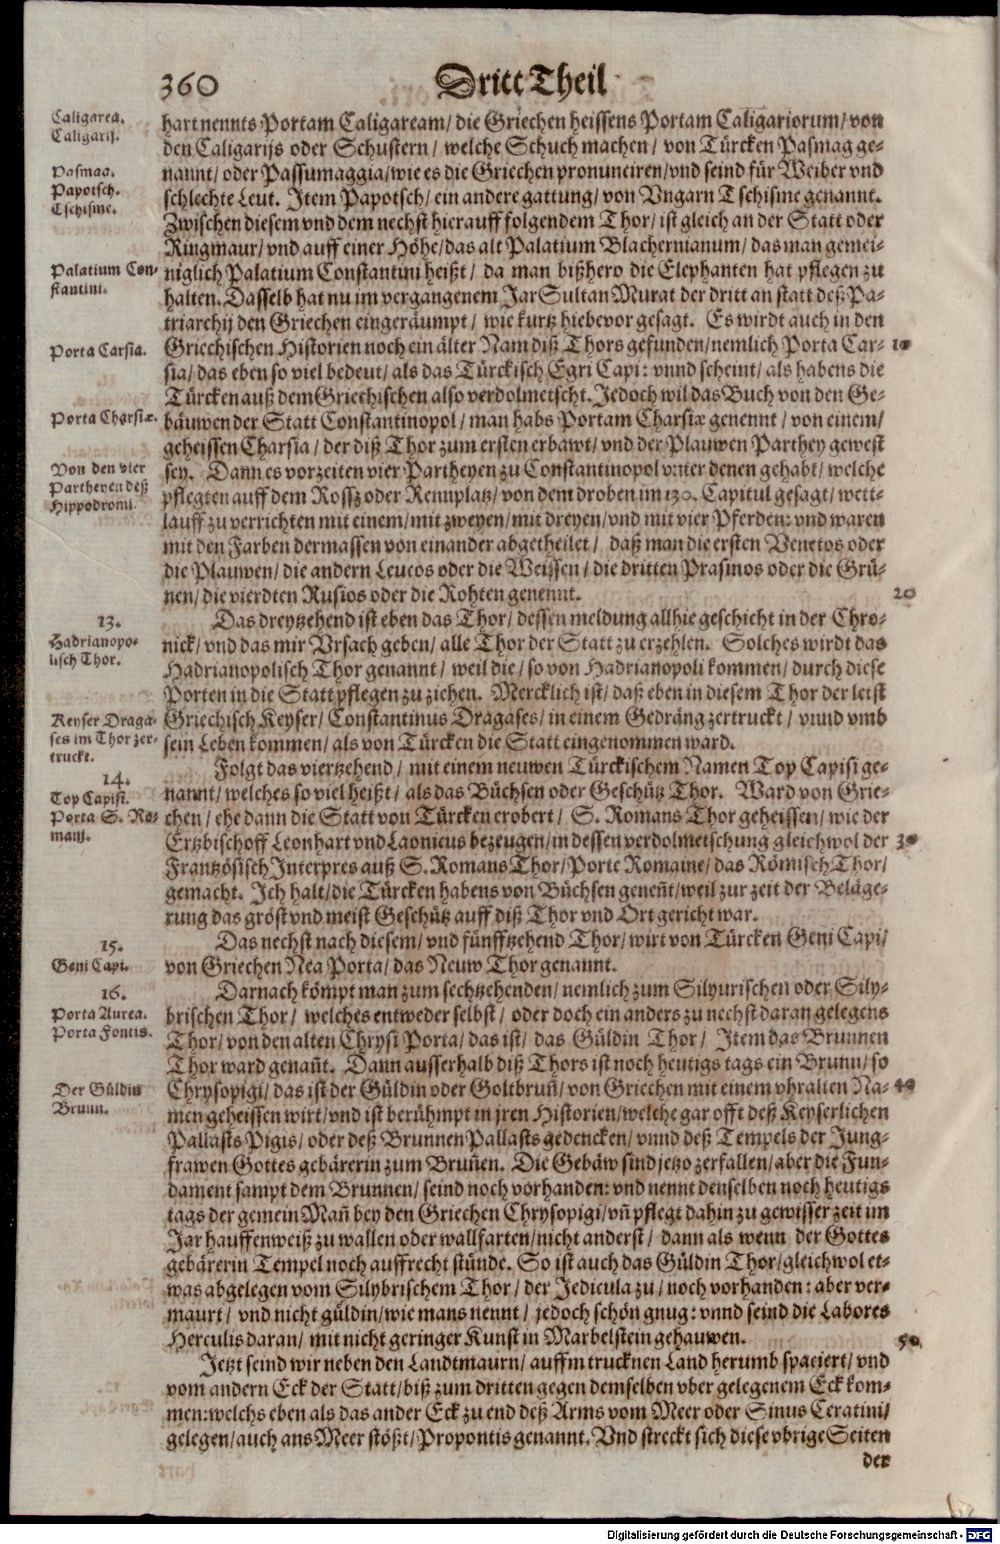 360 Dritt Theil
Caligarea.
Caligarij.
hart nennts Portam Caligaream/ die Griechen heissens Portam Caligariorum/ von
den Caligarijs oder Schustern/ welche Schuch machen/ von Türcken Pasmag ge-
Pasmaa.
nannt/ oder Passumaggia/ wie es die Griechen pronuncieren/ vnd seind für Weiber vnd
Papotsch.
Tschisme.
schlechte Leut. Item Papotsch/ ein andere gattung/ von Vngarn Tschisme genannt.
Zwischen diesem vnd dem nechst hierauff folgendem Thor/ ist gleich an der Statt oder
Ringmaur/ vnd auff einer Höhe/ das alt Palatium Blachernianum/ das man gemei-
Palatium Con-
stantini.
niglich Palatium Constantini heißt/ da man bißhero die Elephanten hat pflegen zu
halten. Dasselb hat nu im vergangenem Jar Sultan Murat der dritt an statt deß Pa-
triarchij den Griechen eingeräumpt/ wie kurtz hiebevor gesagt. Es wirdt auch in den
Porta Carsia.
Griechischen Historien noch ein älter Nam diß Thors gefunden/ nemlich Porta Car- 10
sia/ das eben so viel bedeut/ als das Türckisch Egri Capi: vnnd scheint/ als habens die
Türcken auß dem Griechischen also verdolmetscht. Jedoch wil das Buch von den Ge-
Porta Charsiæ.
bäuwen der Statt Constantinopol/ man habs Portam Charsiæ genennt/ von einem/
geheissen Charsia/ der diß Thor zum ersten erbawt/ vnd der Plauwen Parthey gewest
Von den vier
Partheyen deß
Hippodromi.
sey. Dann es vorzeiten vier Partheyen zu Constantinopol vnter denen gehabt/ welche
pflegten auff dem Rossz oder Rennplatz/ von dem droben im 130. Capitul gesagt/ wett-
lauff zu verrichten mit einem/ mit zweyen/ mit dreyen/ vnd mit vier Pferden: vnd waren
mit den Farben dermassen von einander abgetheilet/ daß man die ersten Venetos oder
die Plauwen/ die andern Leucos oder die Weissen/ die dritten Prasinos oder die Grü-
nen/ die vierdten Rusios oder die Rohten genennt. 20
13.
Hadrianopo-
lisch Thor.
Das dreytzehend ist eben das Thor/ dessen meldung allhie geschicht in der Chro-
nick/ vnd das mir Vrsach geben/ alle Thor der Statt zu erzehlen. Solches wirdt das
Hadrianopolisch Thor genannt/ weil die/ so von Hadrianopoli kommen/ durch diese
Porten in die Statt pflegen zu ziehen. Mercklich ist/ daß eben in diesem Thor der letst
Keyser Draga-
ses im Thor zer-
truckt.
Griechisch Keyser/ Constantinus Dragases/ in einem Gedräng zertruckt/ vnnd vmb
sein Leben kommen/ als von Türcken die Statt eingenommen ward.
14.
Top Capisi.
Porta S. Ro-
mani.
Folgt das viertzehend/ mit einem neuwen Türckischem Namen Top Capisi ge-
nannt/ welches so viel heißt/ als das Büchsen oder Geschütz Thor. Ward von Grie-
chen/ ehe dann die Statt von Türcken erobert/ S. Romans Thor geheissen/ wie der
Ertzbischoff Leonhart vnd Laonicus bezeugen/ in dessen verdolmetschung gleichwol der 30
Frantzösisch Interpres auß S. Romans Thor/ Porte Romaine/ das Römisch Thor/
gemacht. Ich halt/ die Türcken habens von Büchsen geneñt/ weil zur zeit der Beläge-
rung das gröst vnd meist Geschütz auff diß Thor vnd Ort gericht war.
15.
Geni Capi.
Das nechst nach diesem/ vnd fünfftzehend Thor/ wirt von Türcken Geni Capi/
von Griechen Nea Porta/ das Neuw Thor genannt.
16.
Porta Aurea.
Porta Fontis.
Darnach kömpt man zum sechtzehenden/ nemlich zum Silyurischen oder Sily-
brischen Thor/ welches entweder selbst/ oder doch ein anders zu nechst daran gelegens
Thor/ von den alten Chrysi Porta/ das ist/ das Güldin Thor/ Item das Brunnen
Thor ward genañt. Dann ausserhalb diß Thors ist noch heutigs tags ein Brunn/ so
Der Güldin
Brunn.
Chrysopigi/ das ist der Güldin oder Goltbruñ/ von Griechen mit einem vhralten Na- 40
men geheissen wirt/ vnd ist berühmpt in jren Historien/ welche gar offt deß Keyserlichen
Pallasts Pigis/ oder deß Brunnen Pallasts gedencken/ vnnd deß Tempels der Jung-
frawen Gottes gebärerin zum Bruñen. Die Gebäw sind jetzo zerfallen/ aber die Fun-
dament sampt dem Brunnen/ seind noch vorhanden: vnd nennt denselben noch heutigs
tags der gemein Mañ bey den Griechen Chrysopigi/ vñ pflegt dahin zu gewisser zeit im
Jar hauffenweiß zu wallen oder wallfarten/ nicht anderst/ dann als wenn der Gottes
gebärerin Tempel noch auffrecht stünde. So ist auch das Güldin Thor/ gleichwol et-
was abgelegen vom Silybrischem Thor/ der Jedicula zu/ noch vorhanden: aber ver-
maurt/ vnd nicht güldin/ wie mans nennt/ jedoch schön gnug: vnnd seind die Labores
Herculis daran/ mit nicht geringer Kunst in Marbelstein gehauwen. 50
Jetzt seind wir neben den Landtmaurn/ auffm trucknen Land herumb spaciert/ vnd
vom andern Eck der Statt/ biß zum dritten gegen demselben vber gelegenem Eck kom-
men: welchs eben als das ander Eck zu end deß Arms vom Meer oder Sinus Ceratini/
gelegen/ auch ans Meer stößt/ Propontis genannt. Vnd streckt sich diese vbrige Seiten
der
Digitalisierung gefördert durch die Deutsche Forschungsgemeinschaft - DFG